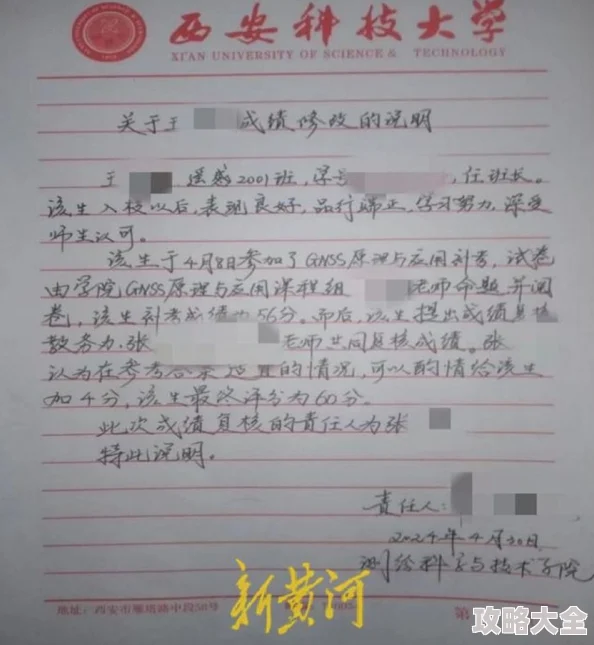 西安科技大学
XI'AN UNIVERSITY OF SCIENCE & TECHNOLOGY
关于王 成绩修改的说明
王 遥感2001班，学号 ，任班长。
该生入校以后，表现良好，品行端正，学习努力，深受
师生认可。
该生于4月8日参加了GNSS原理与应用补考，试卷
由学院GNSS原理与应用课程组 老师命题并阅
卷，该生补考成绩为56分。而后，该生提出成绩复核
教务办张 老师共同复核成绩。张
认为在参考答案 的情况，可以酌情给该生
加4分，该生最终评分为60分。
此次成绩复核的责任人为张
特此说明。
责任人：
2024年4月30日
测绘科学与技术学院
地址：西安市雁塔路中段58号
第
新黄河
攻略大全